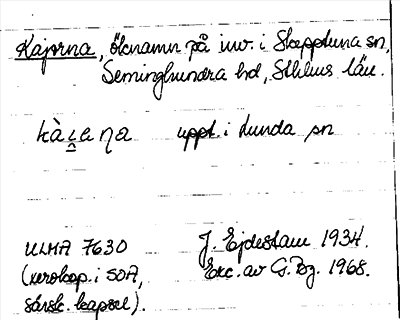 Kajorna, öknamn på inv. i Skepptuna sn,
Seminghundra hd, Sthlms län.
uppt. i Lunda sn
ULMA 7630
(xerokop. i SOA,
särsk. kapsel).
J. Ejdestam 1934.
Exc. av G. Bg. 1968.